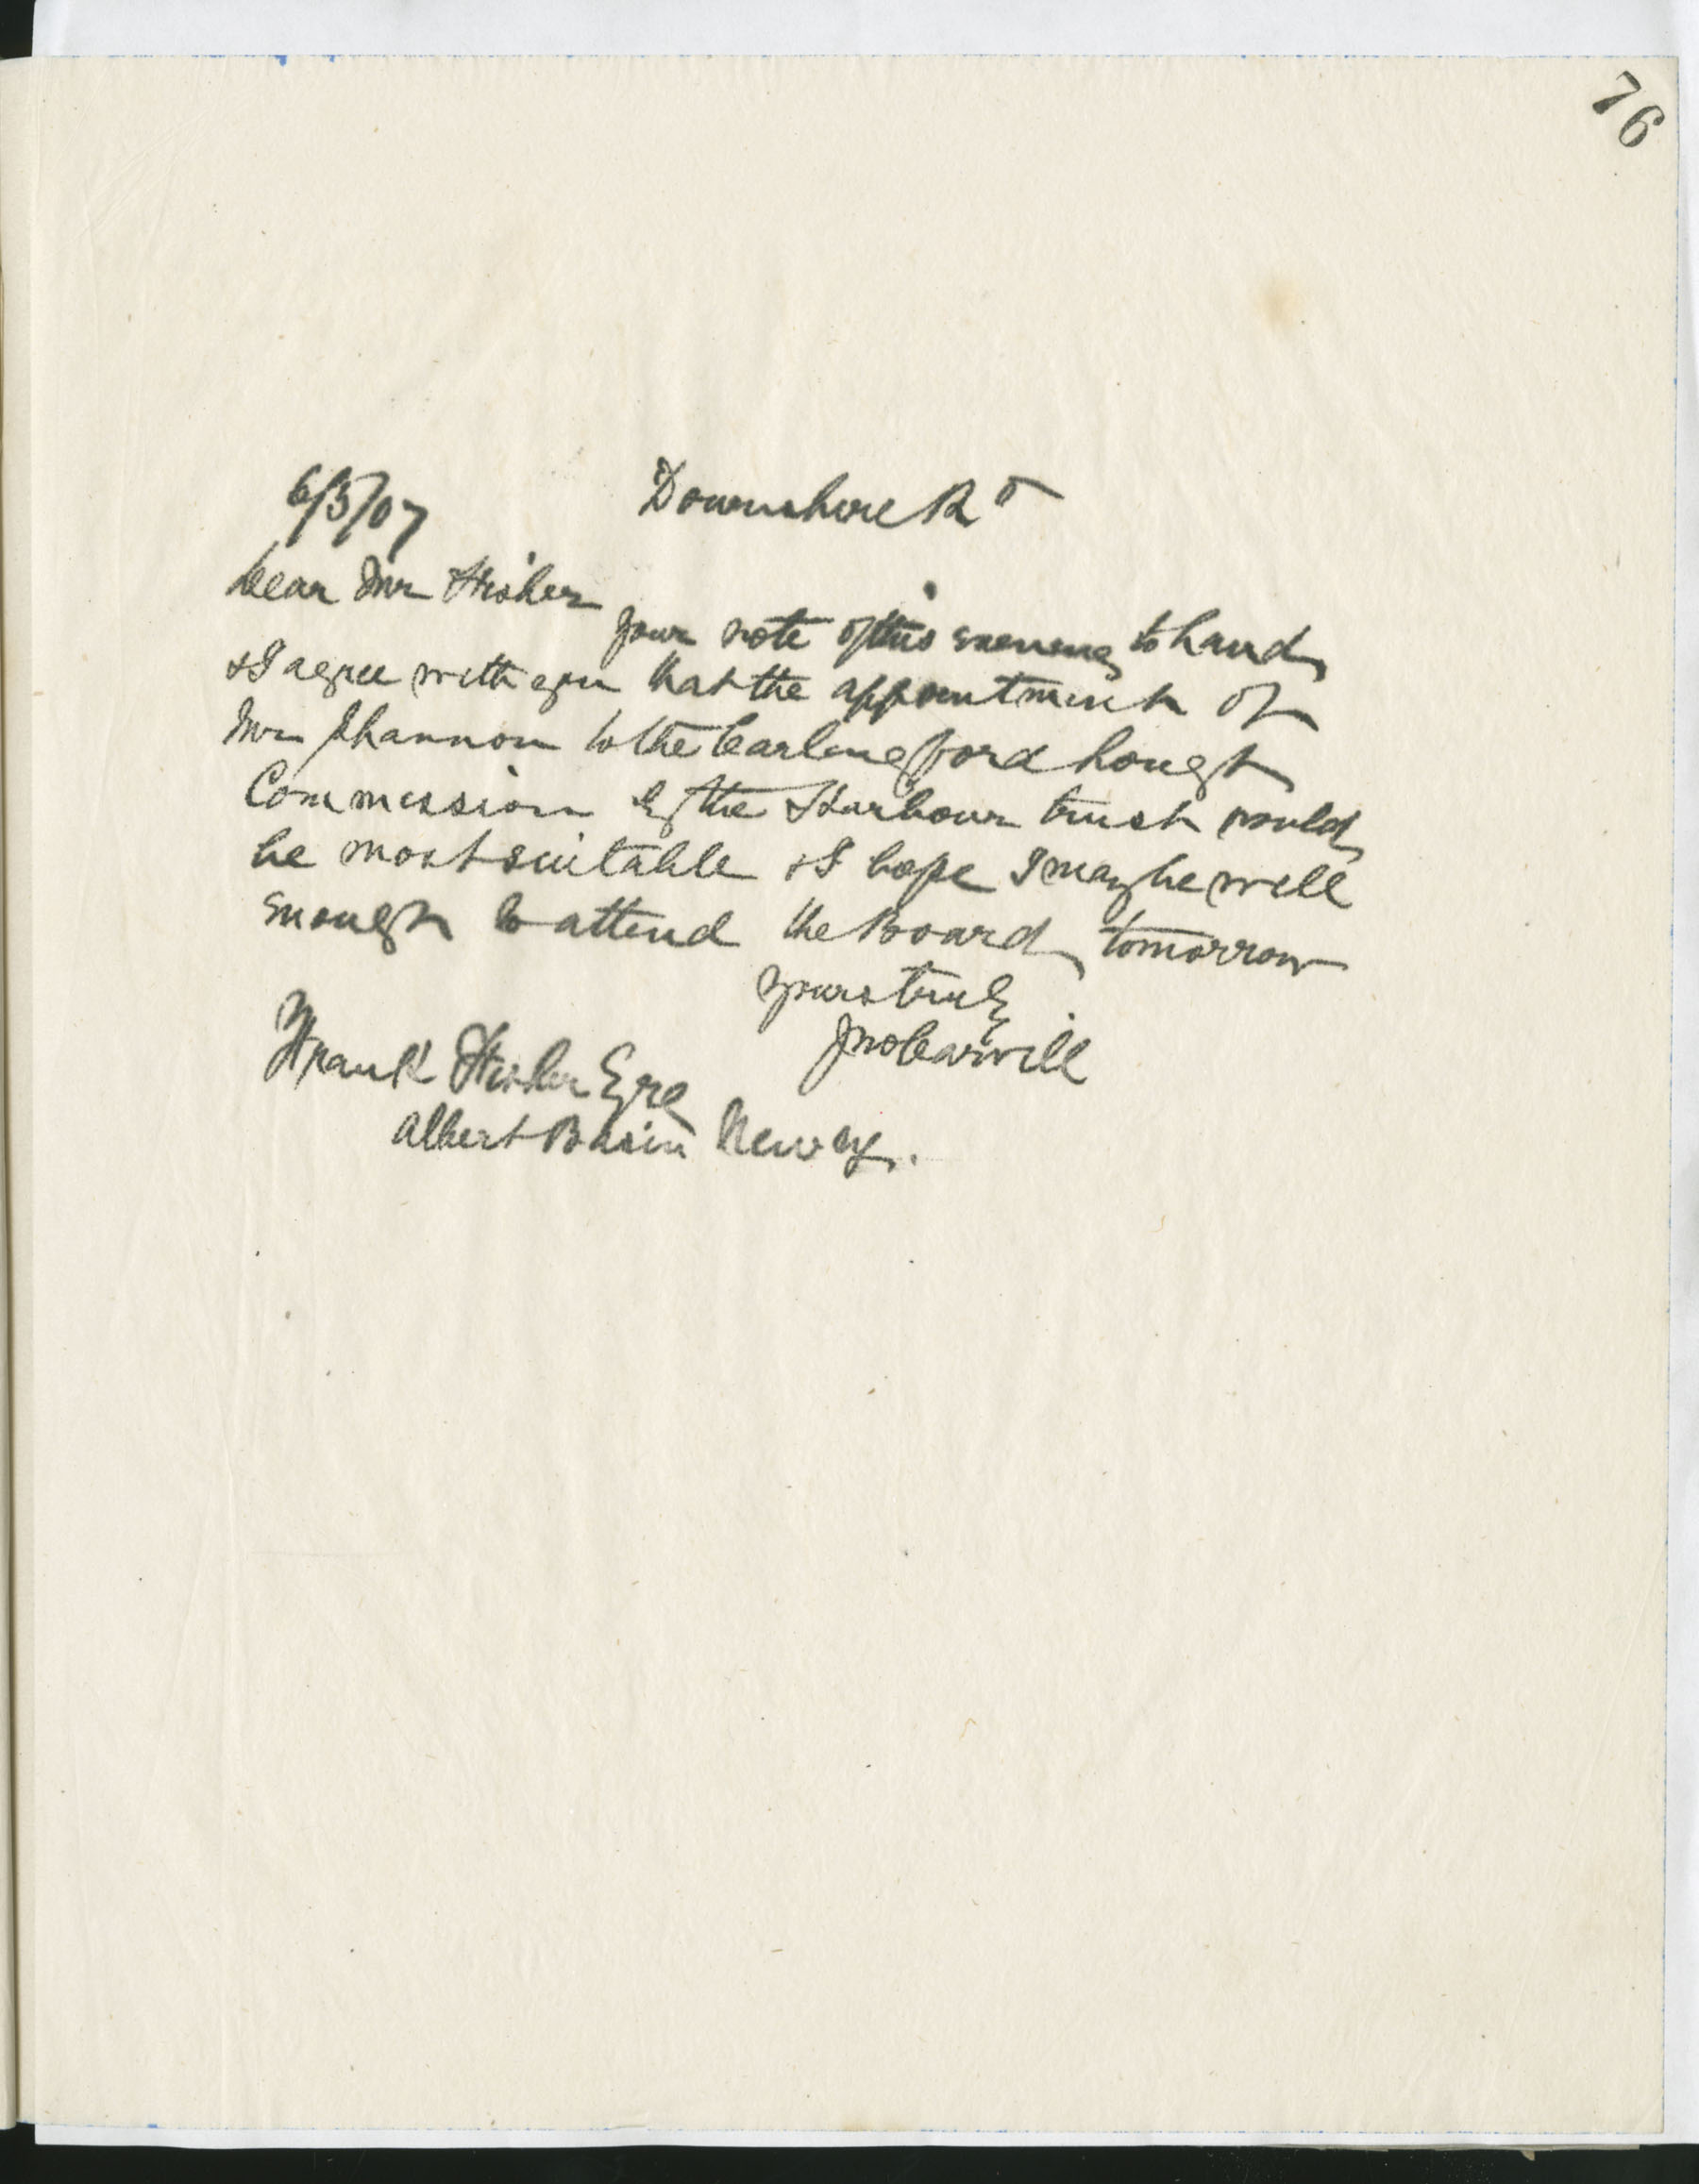 76
6/3/07 Downshire Rd
Dear Mr Fisher
your note of this evening to hand
& I agree with you that the appointment of
Mr Shannon to the Carlingford Lough
Commission by the Harbour trust would
be most suitable & I hope I may be well
enough to attend the Board tomorrow
yours truly
Jno Carvill
Frank Fisher Esre
Albert Basin Newry.